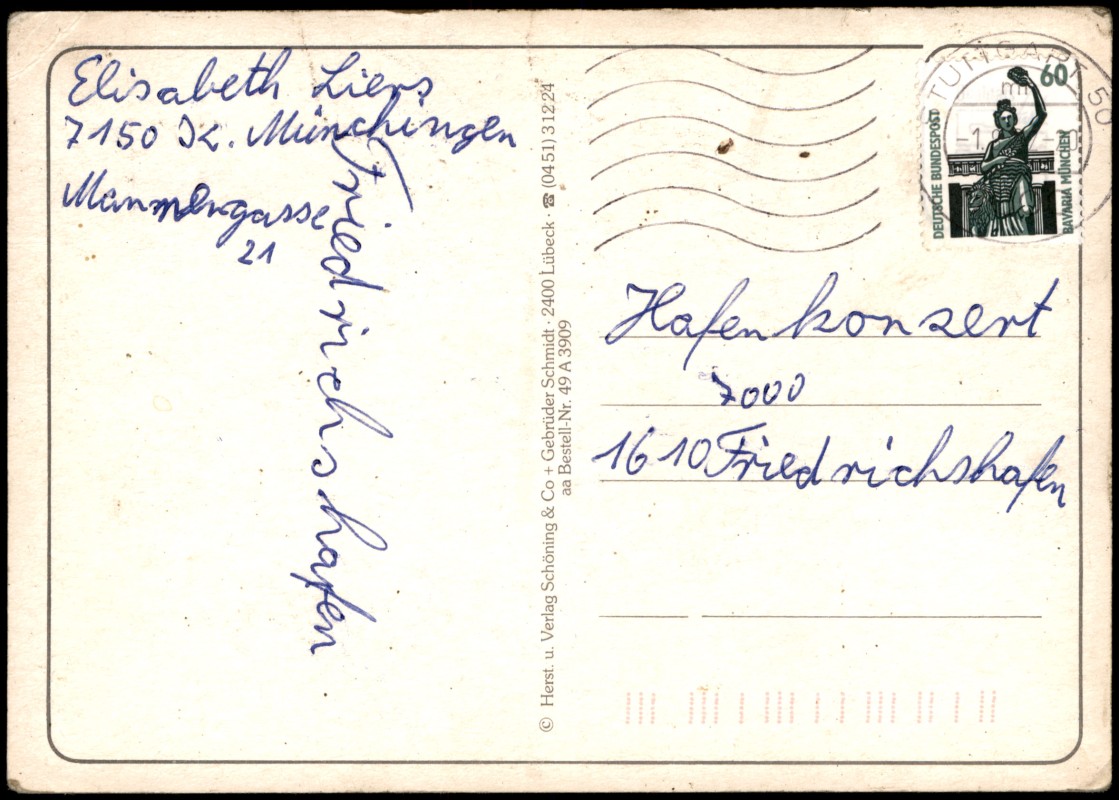 Elisabeth Liers
7150 K. Münchingen
21
Friedrichshafen
© Herst. u. Verlag Schöning & Co + Gebrüder Schmidt · 2400 Lübeck · ☎ (0451) 3 12 24
aa Bestell-Nr. 49 A 3909
STUTTGART 50
60
DEUTSCHE BUNDESPOST
BAVARIA MÜNCHEN
Hafenkonzert
7000
1610 Friedrichshafen